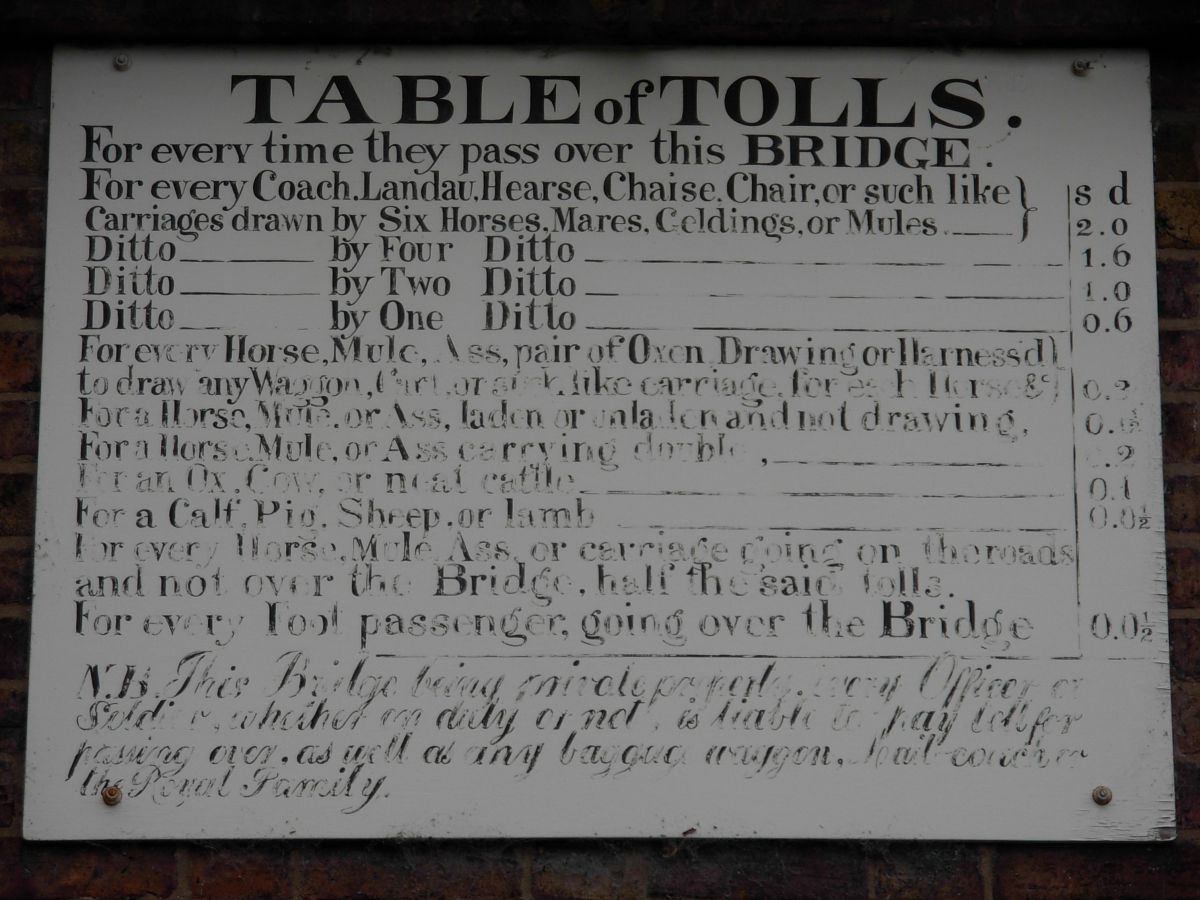 TABLE of TOLLS.
For every time they pass over this BRIDGE.
For every Coach. Landau, Hearse, Chaise. Chair, or such like } s d
Carriages drawn by Six Horses, Mares, Geldings, or Mules. } 2.0
Ditto by Four Ditto 1.6
Ditto by Two Ditto 1.0
Ditto by One Ditto 0.6
For every Horse, Mule, Ass, pair of Oxen Drawing or Harness'd }
to draw any Waggon, Cart, or such like carriage, for each Horse &c }
For a Horse, Mule, or Ass, laden or unladen and not drawing, 0.1½
For a Horse Mule, or Ass carrying double, .2
For an Ox, Cow, or neat cattle 0.1
For a Calf, Pig, Sheep, or lamb 0.0½
For every Horse, Mule, Ass, or carriage going on the roads
and not over the Bridge, half the said tolls.
For every Foot passenger, going over the Bridge 0.0½
N.B. This Bridge being private property, every Officer or
Soldier, whether on duty or not, is liable to pay toll for
passing over, as well as any baggage waggon, Mail-coach or
the Royal Family.